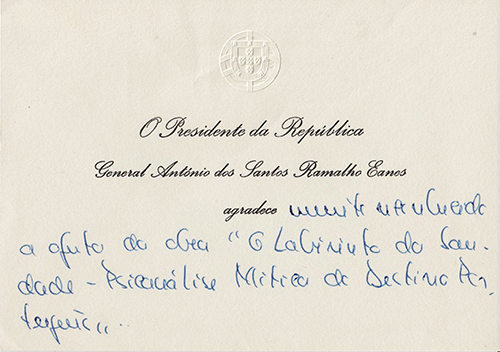 O Presidente da República
General António dos Santos Ramalho Eanes
agradece muito
a oferta da obra "O Labirinto da Sau-
dade - Psicanálise Mítica do Destino Por-
tuguês"..